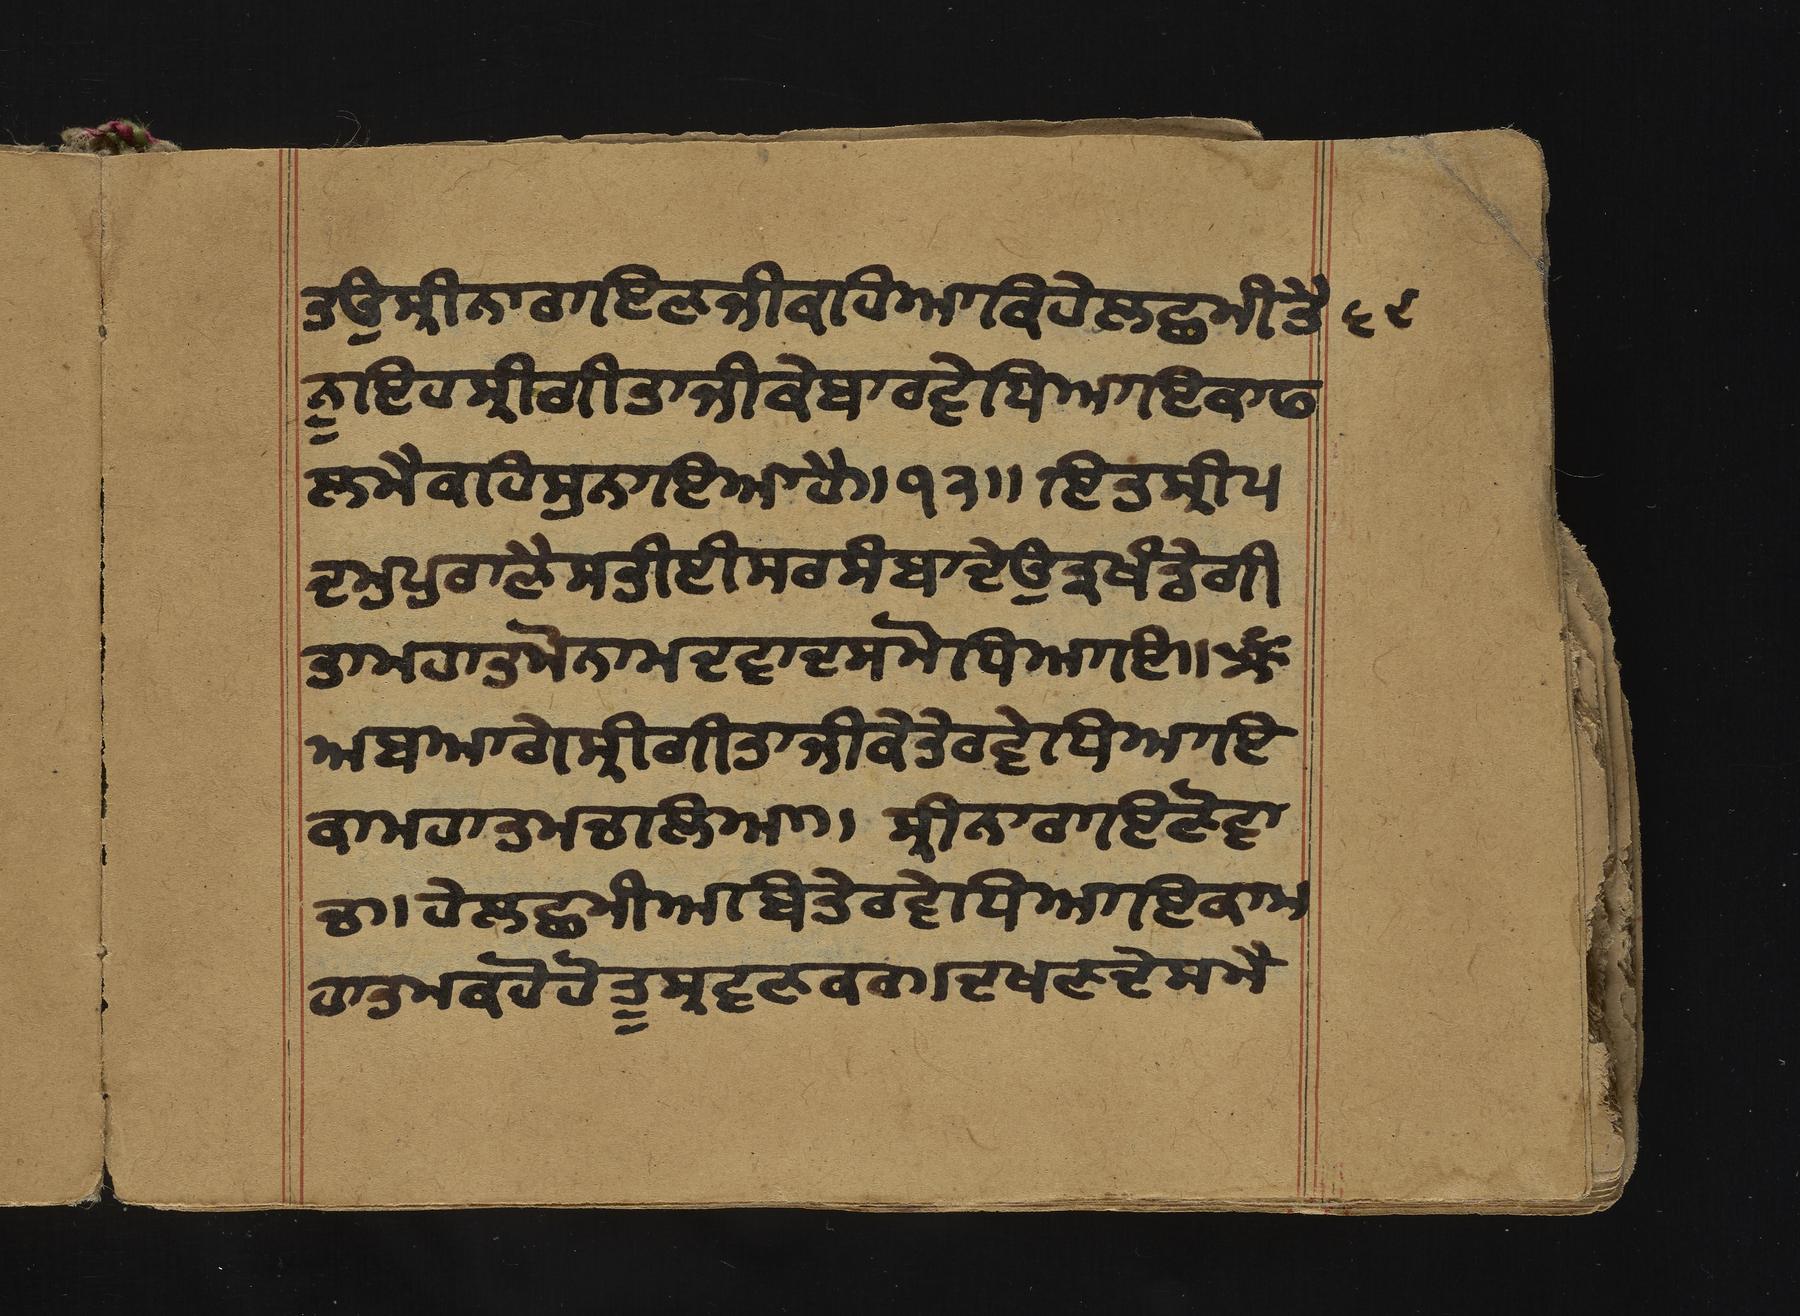 ਤਉਸ੍ਰੀਨਾਰਾਇਣਜੀਕਹਿਆਕਿਹੇਲਛਮੀਤੈ ੬੯
ਨੂੰਇਹਸ੍ਰੀਗੀਤਾਜੀਕੇਬਾਰਵੇਧਿਆਇਕਾਫ
ਲਮੈਕਹਿਸੁਨਾਇਆਹੈ।੧੨।। ਇਤਸ੍ਰੀਪ
ਦਮੁਪੁਰਾਣੈਸਤੀਈਸਰਸੰਬਾਦੇਉਤ੍ਰਖੰਡੇਗੀ
ਤਾਮਹਾਤਮੋਨਾਮਦਵਾਦਸਮੋਧਿਆਇ।।
ਅਬਆਗੇਸ੍ਰੀਗੀਤਾਜੀਕੇਤੇਰਵੇਧਿਆਇ
ਕਾਮਹਾਤਮਚਾਲਿਆ।। ਸ੍ਰੀਨਾਰਾਇਣੋਵਾ
ਚਾ। ਹੇਲਛਮੀਆਬਿਤੇਰਵੇਧਿਆਇਕਾਮ
ਹਾਤਮਕਹੋਹੋਤੂਸ੍ਰਵਣਕਰ।ਦਖਣਦੇਸਮੈ